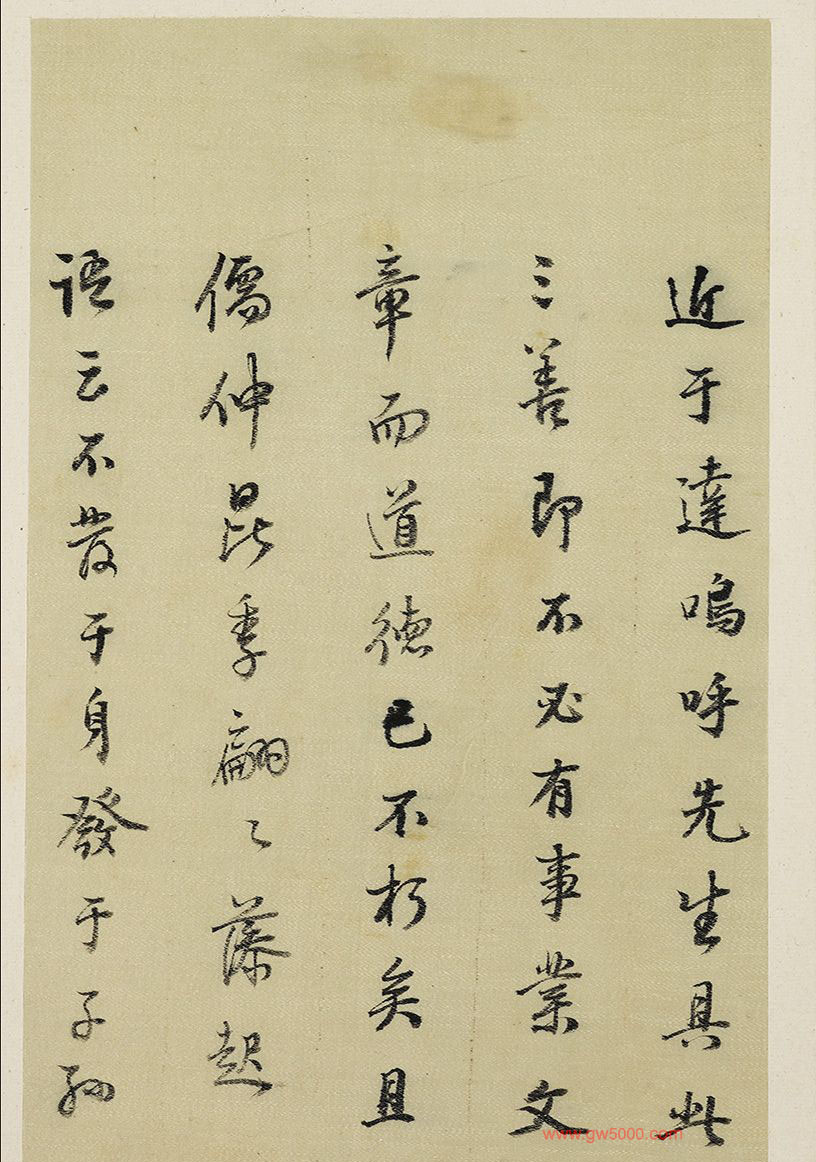 近于達嗚呼先生具此
三善即不必有事業文
章而道德已不朽矣且
儒仲昆季翩〻藻起
語云不發于身發于子孫
www.gw5000.com